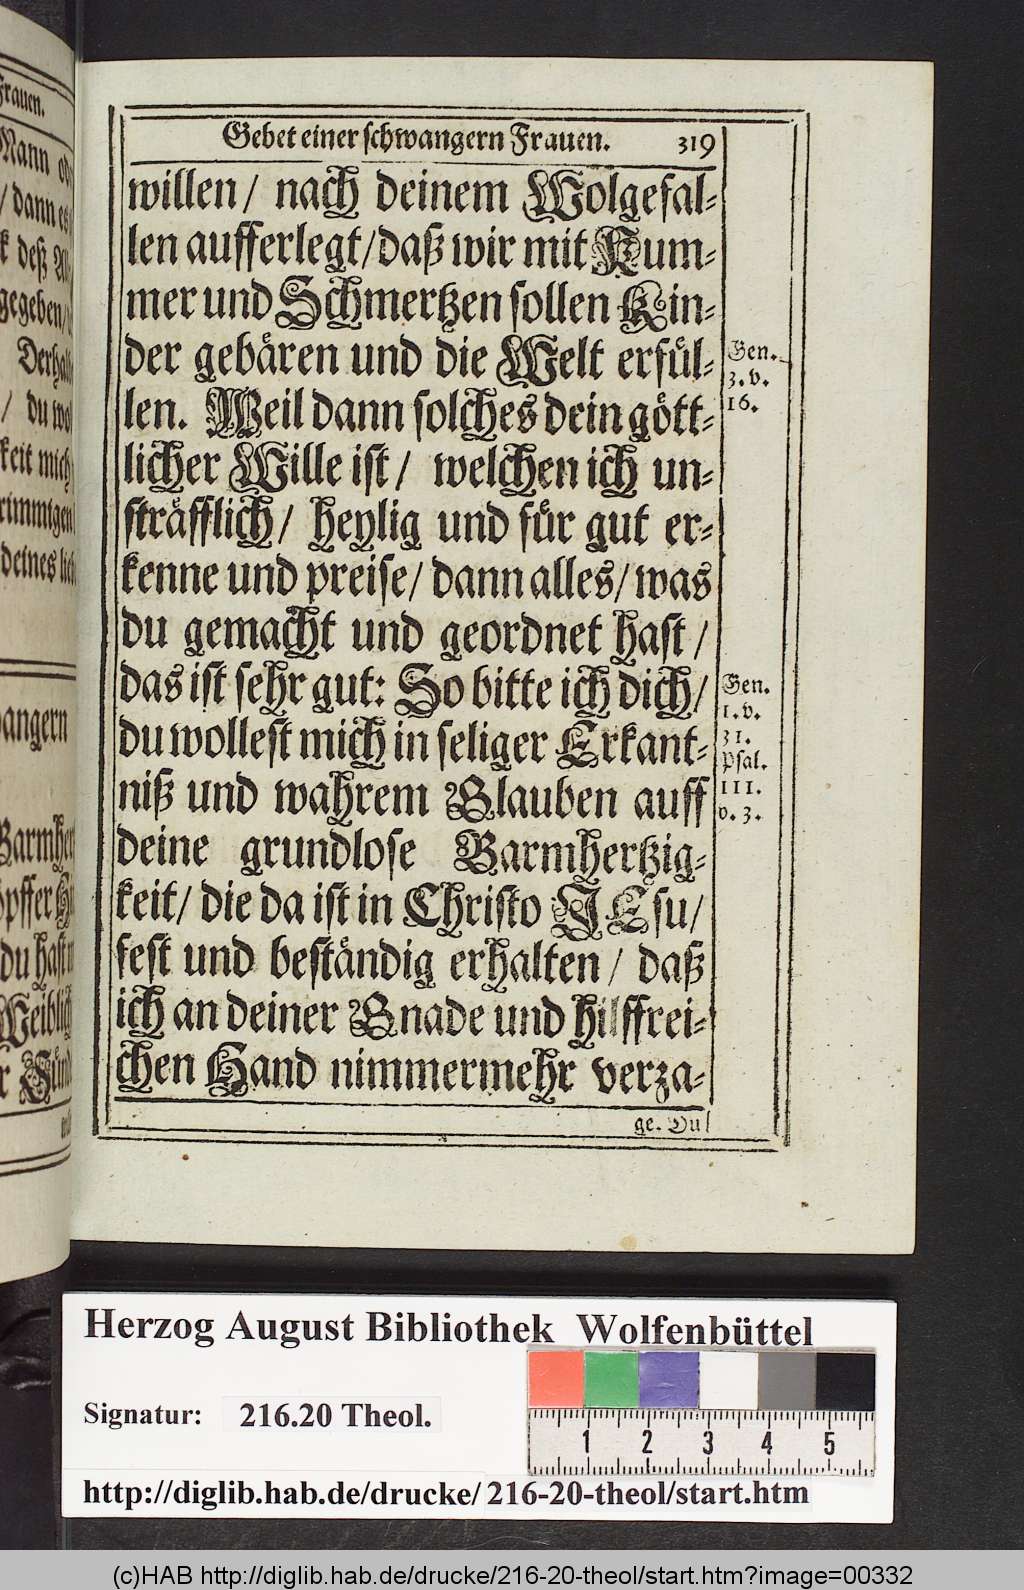 Frauen.
Mann
/ dann es
deß
gegeben/
Derhal
/ du wol
keit mich
rimmigen
deines lie
wangern
Barmher
öpffer
du hast
Weiblich
r Sünd
Gebet einer schwangern Frauen. 319
willen/ nach deinem Wolgefal-
len aufferlegt/daß wir mit Kum-
mer und Schmertzen sollen Kin-
der gebären und die Welt erfül-
len. Weil dann solches dein gött-
licher Wille ist/ welchen ich un-
sträfflich/ heylig und für gut er-
kenne und preise/ dann alles/ was
du gemacht und geordnet hast/
das ist sehr gut: So bitte ich dich/
du wollest mich in seliger Erkant-
niß und wahrem Glauben auff
deine grundlose Barmhertzig-
keit/ die da ist in Christo JEsu/
fest und beständig erhalten/ daß
ich an deiner Gnade und hilffrei-
chen Hand nimmermehr verza-
ge. Du
Gen.
3. v.
16.
Gen.
1. v.
31.
Psal.
111.
v. 3.
Herzog August Bibliothek Wolfenbüttel
Signatur: 216.20 Theol.
1 2 3 4 5
http://diglib.hab.de/drucke/216-20-theol/start.htm
(c)HAB http://diglib.hab.de/drucke/216-20-theol/start.htm?image=00332